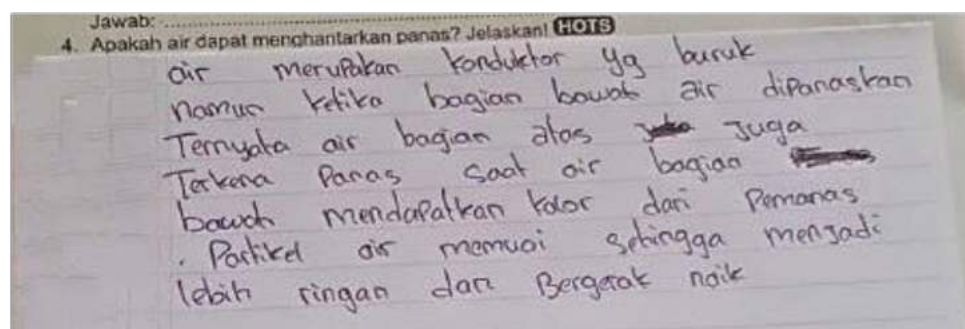 Jawab:
4. Apakah air dapat menghantarkan panas? Jelaskan! HOTS
air merupakan konduktor yg buruk
namun ketika bagian bawah air dipanaskan
Ternyata air bagian atas Juga
Terkena Panas saat air bagian
bawah mendapatkan kalor dari Pemanas
. Partikel air memuai sehingga menjadi
lebih ringan dan Bergerak naik